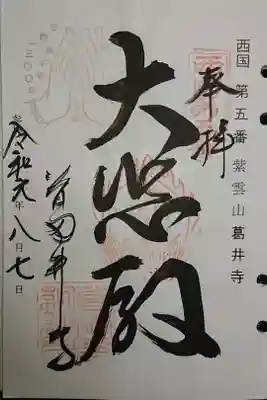 西国 第五番 紫雲山 葛井寺
奉拝
大悲殿
葛井寺
令和元年八月七日